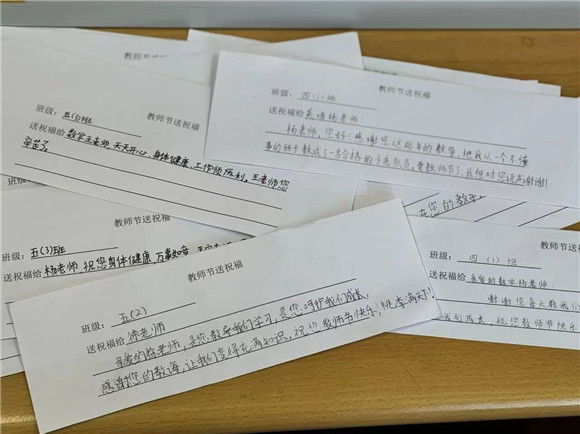 教师节送祝福
教师节送祝福
班级：五(3)班
送祝福给 数学王老师，天天开心，身体健康，工作顺利。王老师您
辛苦了。
教师节送祝福
班级：四（1）班
送祝福给 杨老师：
杨老师，你好！感谢您这些年的教导，把我从一个不懂
事的孩子教成了一名合格的少先队员。教师节了，我想对您说声谢谢！
教师节送祝福
班级：五(3)班
送祝福给 杨老师 祝您身体健康，万事如意，
教师节送祝福
班级：五(2)
送祝福给 徐老师
亲爱的徐老师，是您教导我们学习，是您呵护我们成长，
感谢您的教诲，让我们变得充满知识，祝你教师节快乐！桃李满天下！
在您的教导
教师节
班级：四（1）班
送祝福给 亲爱的数学杨老师：
谢谢您每天教我们
我们成长，祝您教师节快乐